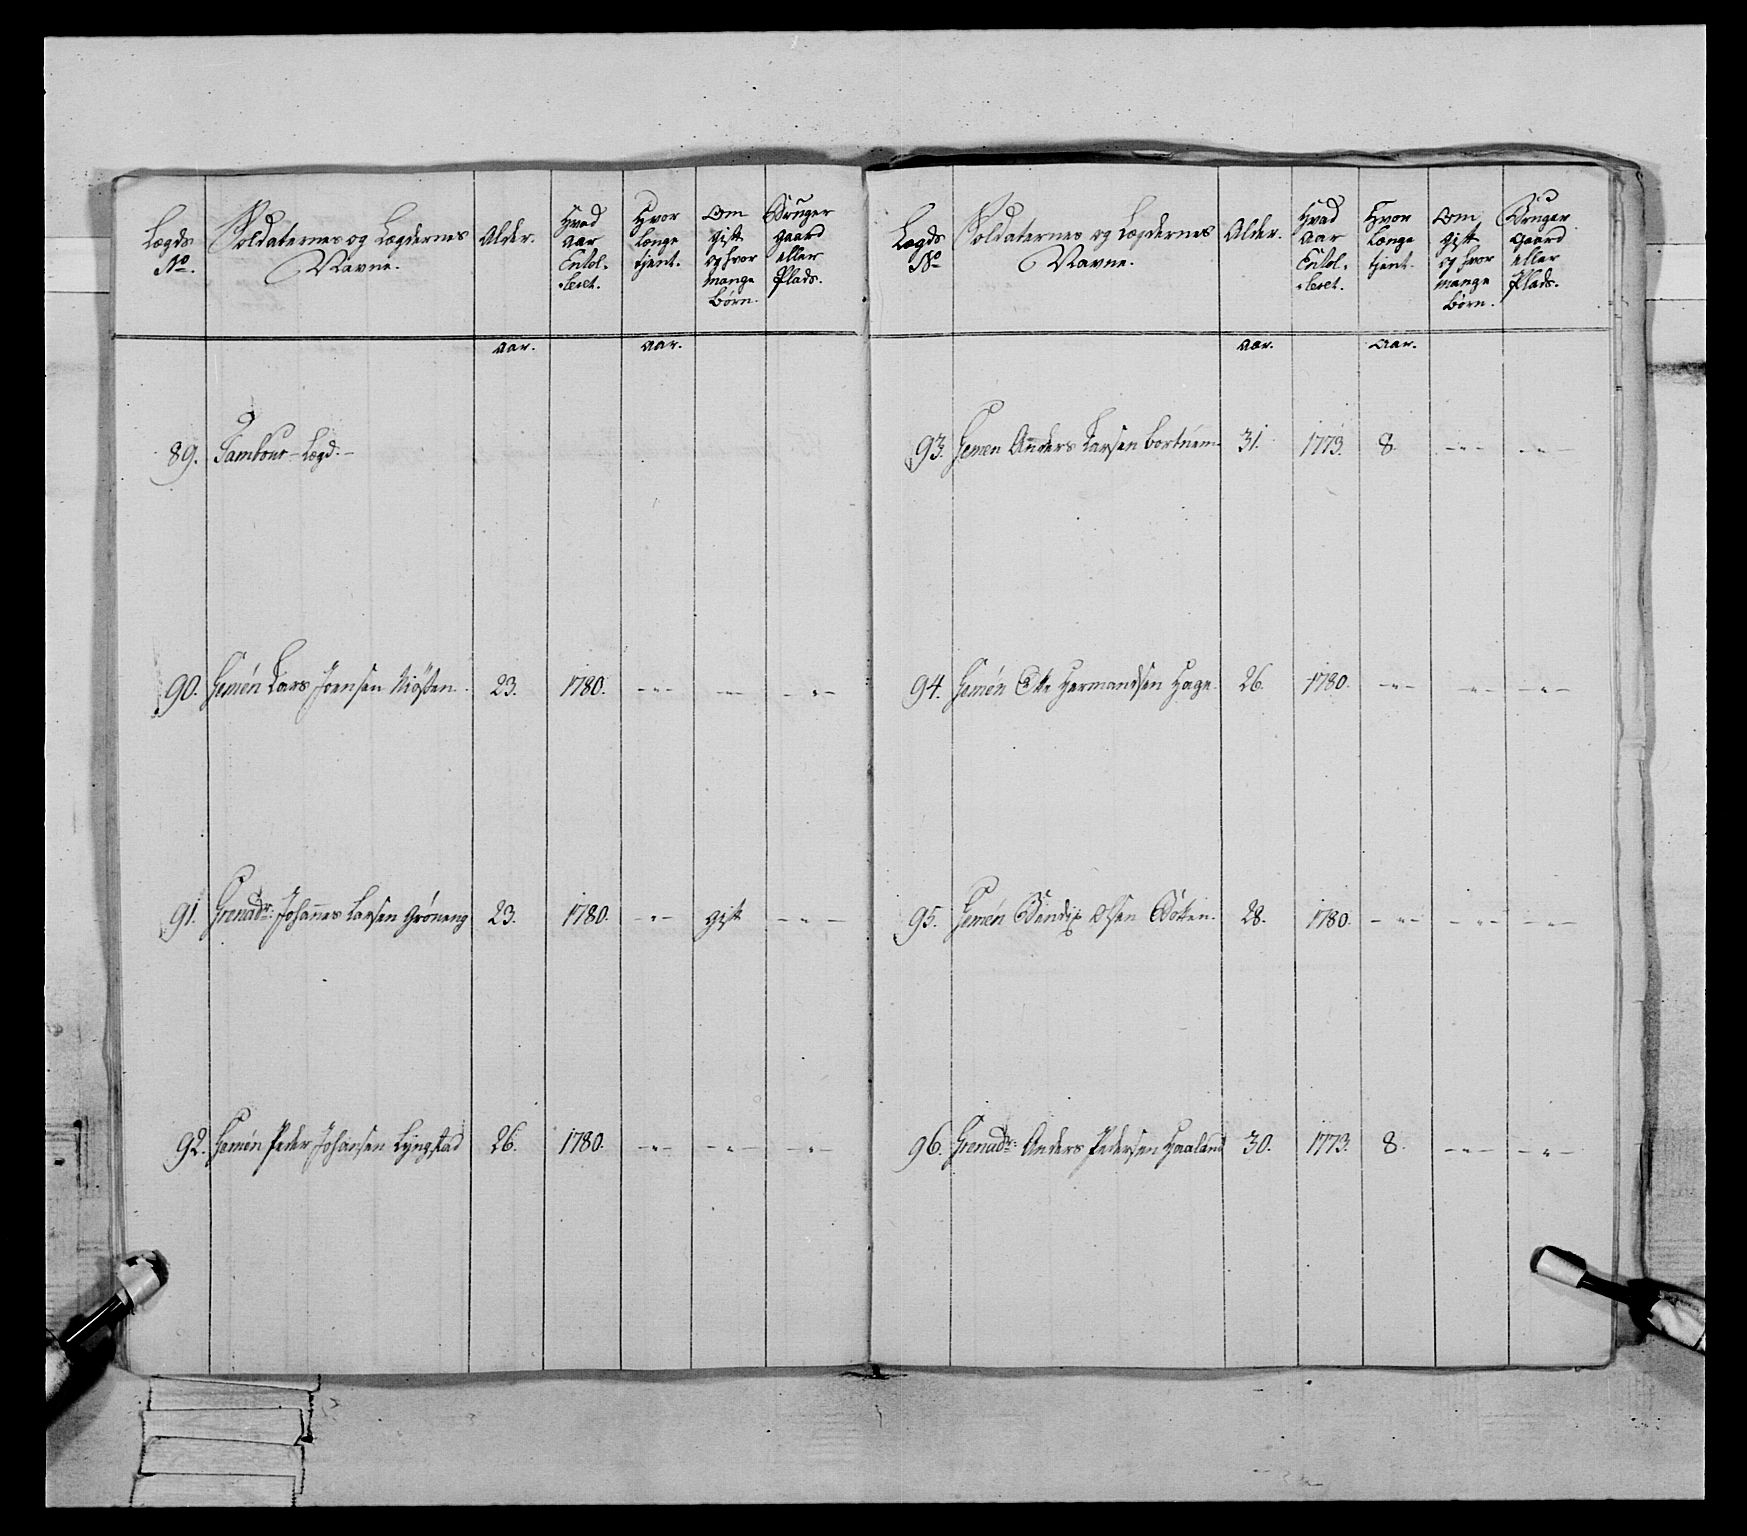 Lægds No. | Soldaternes og Lægdernes Navne. | Alder. | Hvad Aar Enrol- leret. | Hvor længe tjent. | Om gift og hvor mange Børn. | Bruger Gaard eller Plads.
Aar. Aar.
89. Tambour-Lægd.-
90. Gemén Lars Joensen 23. 1780. -"- -"- -"-
91. Grenadr: Johannes Larsen Gröneng 23. 1780. -"- gift -"-
92. Gemén Peder Johansen Lyngstad 26. 1780. -"- -"- -"-
Lægds No | Soldaternes og Lægdernes Navne. | Alder. | Hvad Aar Enrol- leret. | Hvor længe tjent. | Om gift og hvor mange Børn. | Bruger Gaard eller Plads.
Aar. Aar.
93. Gemen Anders Larsen 31. 1773. 8. -"- -"-
94. Gemén Ole Hermandsen Hage. 26. 1780. -"- -"- -"-
95. Gemén Bendix Olsen 28. 1780. -"- -"- -"-
96. Grenadr: Anders Pedersen Haaland 30. 1773. 8. -"- -"-